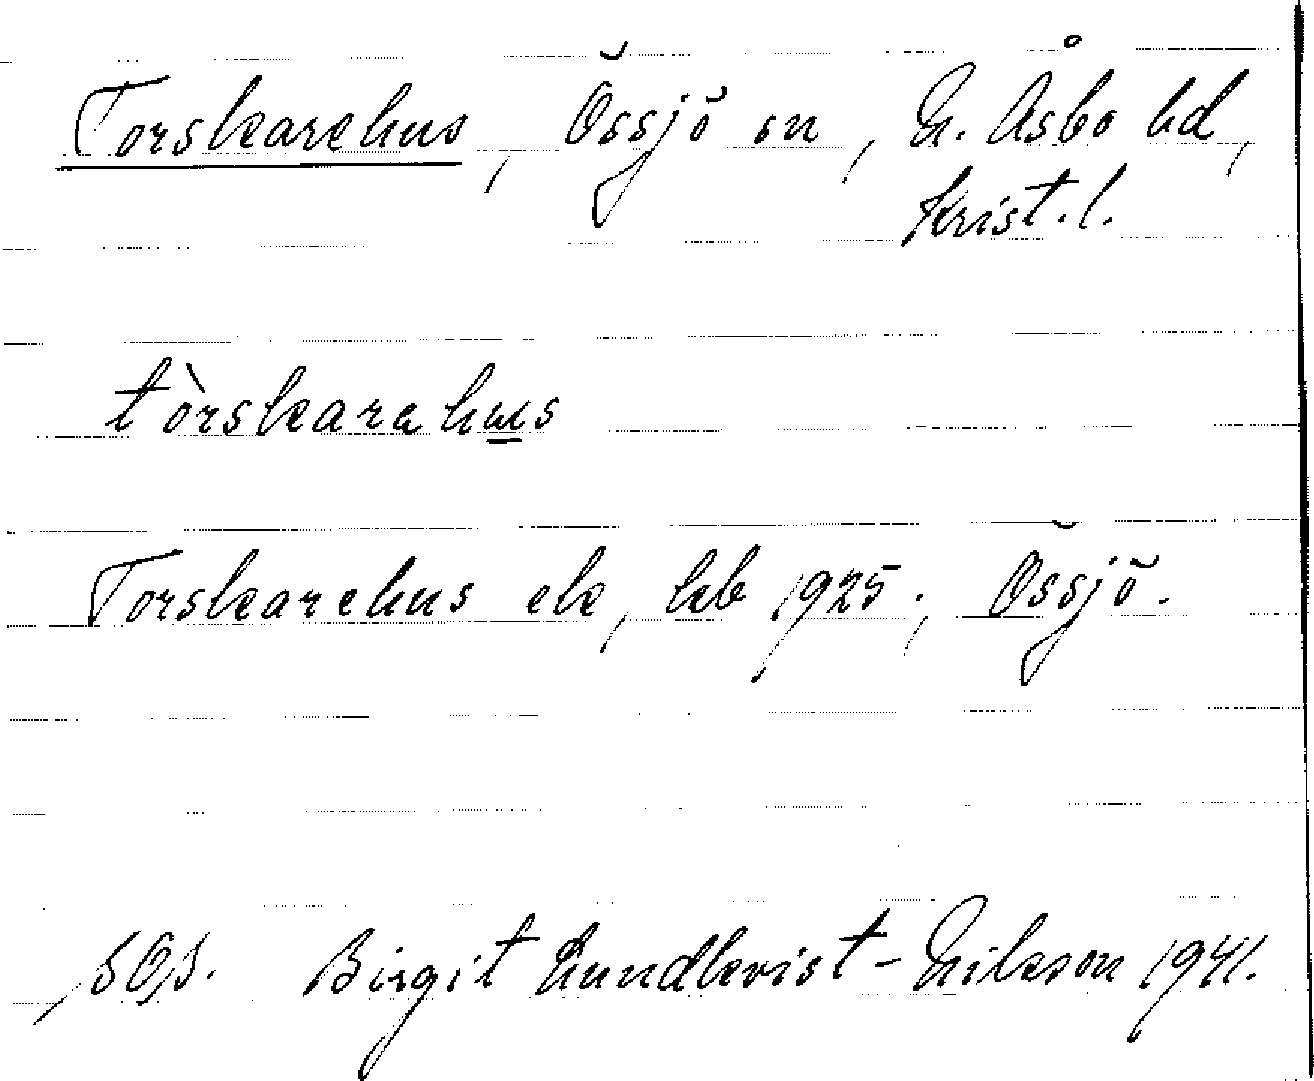 Torskarehus, Össjö sn, N. Åsbo hd,
Krist. l.
tòrskarahus
Torskarehus ek, kb 1925; Össjö.
Birgit Lundkvist-Nilsson 1941.